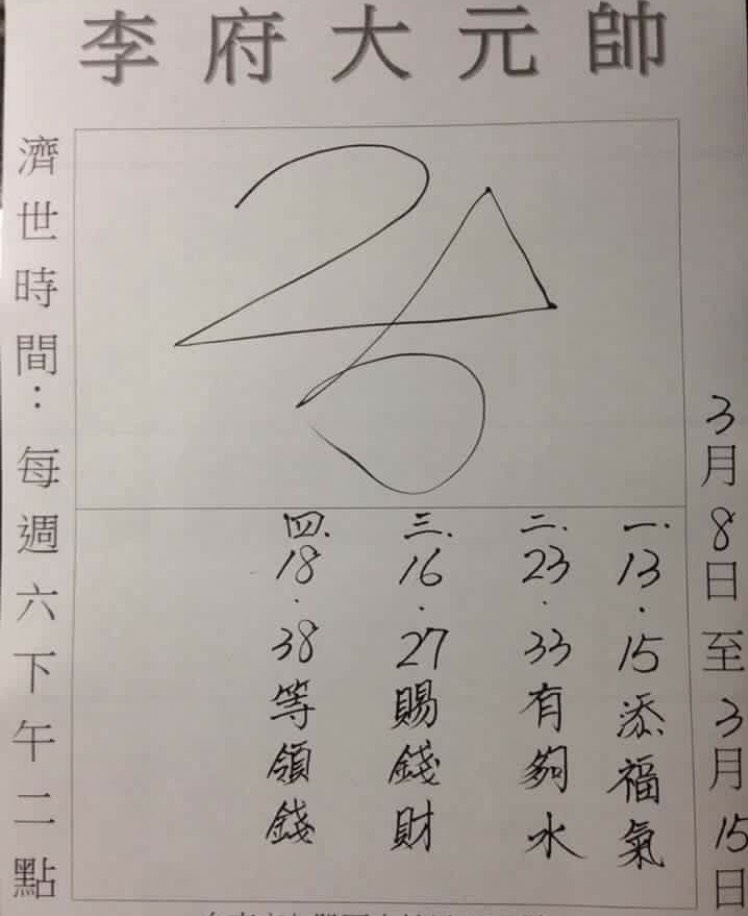 李府大元帥
3月8日至3月15日
一.13.15添福氣
二.23.33有夠水
三.16.27賜錢財
四.18.38等領錢
濟世時間：每週六下午二點